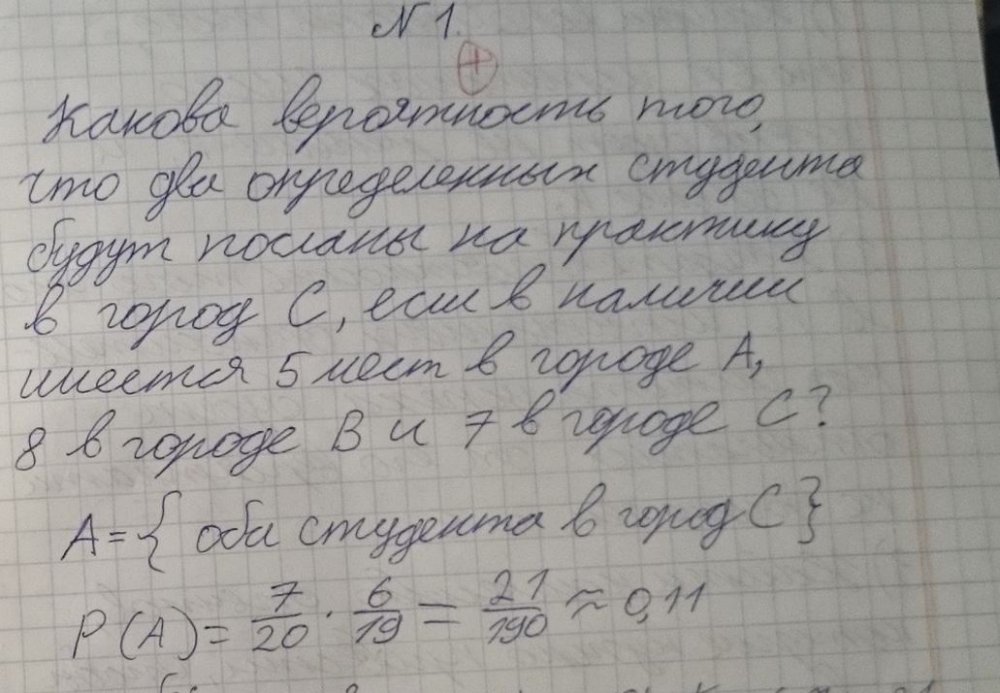 N 1.
+
Какова вероятность того,
что два определенных студента
будут посланы на практику
в город С, если в наличии
имеется 5 мест в городе А,
8 в городе В и 7 в городе С?
А={ оба студента в город С}
P(A)= 7/20 · 6/19 = 21/190 ≈ 0,11